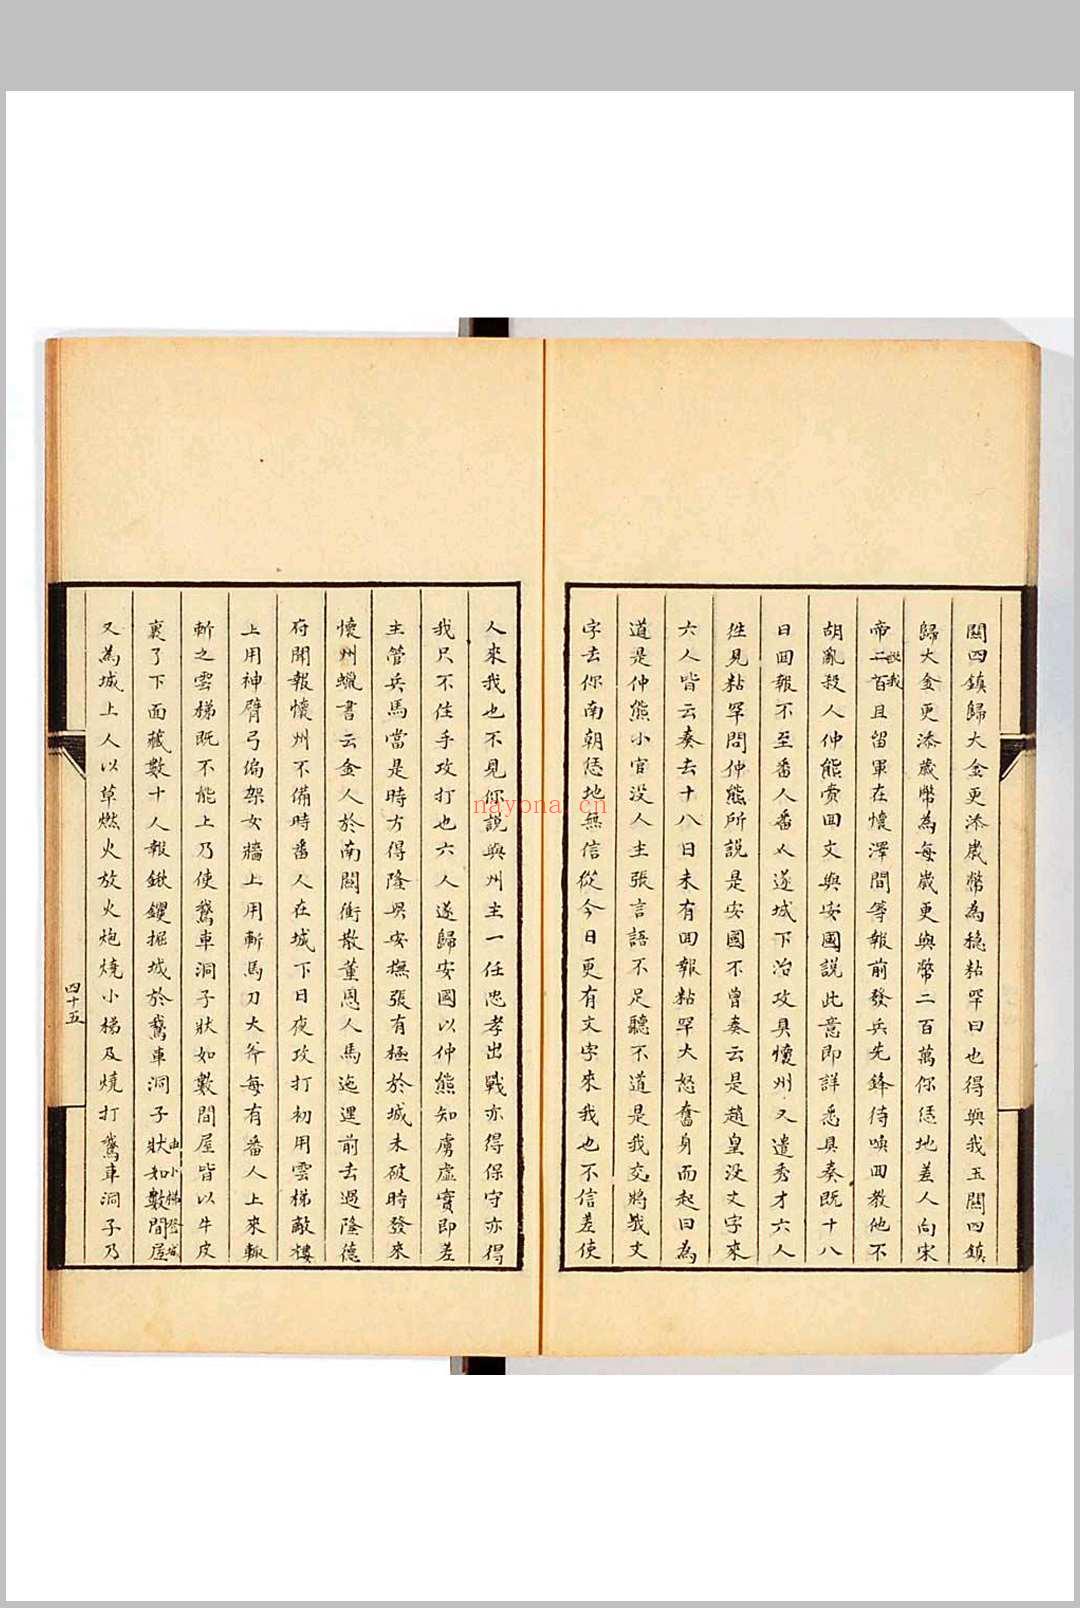 關四鎮歸大金更添歲幣為穩粘罕曰也得與我五關四鎮
歸大金更添歲幣為每歲更與幣二百萬你恁地差人向宋
帝說我二百且留軍在懷澤間等報前發兵先鋒待喚回教他不
胡亂殺人仲熊賫回文與安國說此意即詳悉具奏既十八
日回報不至番人番乂遂城下治攻具懷州又遣秀才六人
姓見粘罕問仲熊所說是安國不曾奏云是趙皇沒文字來
六人皆云奏去十八日未有回報粘罕大怒奮身而起曰為
道是仲熊小官沒人主張言語不足聽不道是我交將我文
字去你南朝恁地無信從今日更有文字來我也不信差使
人來我也不見你說與州主一任忠孝出戰亦得保守亦得
我只不住手攻打也六人遂歸安國以仲熊知虜虛實即差
主管兵馬當是時方得隆興安撫張有極於城未破時發來
懷州蠟書云金人於南關衝散董恩人馬迤邐前去過隆德
府開報懷州不備時番人在城下日夜攻打初用雲梯敵樓
上用神臂弓偏架女牆上用斬馬刀大斧每有番人上來輒
斬之雲梯既不能上乃使鵞車洞子狀如數間屋皆以牛皮
裹了下面藏數十人報鍬钁掘城於鵞車洞子狀如數間屋由小梯登城
又為城上人以草燃火放火炮燒小梯及燒打鵞車洞子乃
四十五
nayona.cn